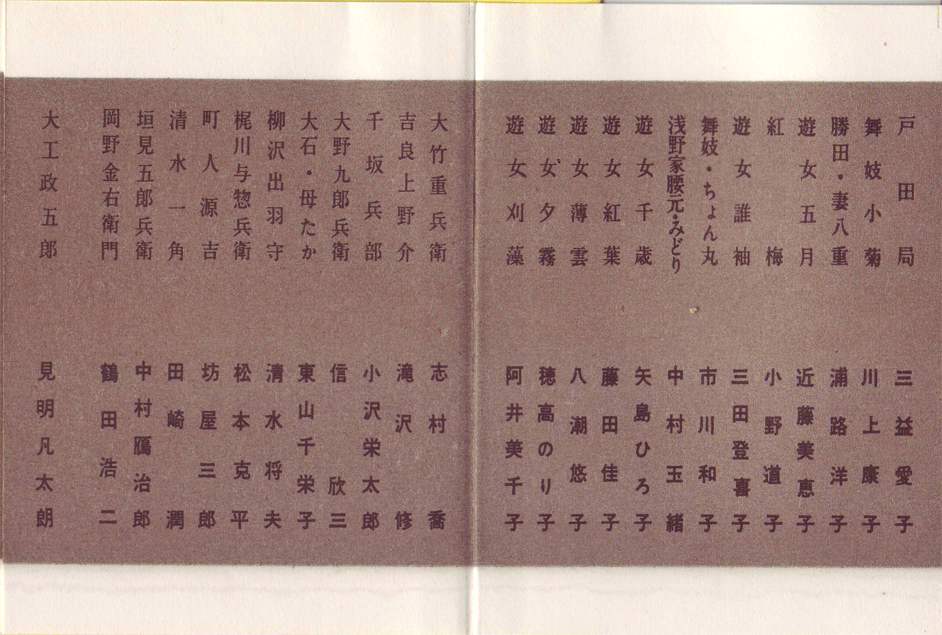 戸田局 三益愛子
舞妓小菊 川上康子
勝田・妻八重 浦路洋子
遊女五月 近藤美恵子
紅梅 小野道子
遊女誰袖 三田登喜子
舞妓・ちょん丸 市川和子
浅野家腰元・みどり 中村玉緒
遊女千歳 矢島ひろ子
遊女紅葉 藤田佳子
遊女薄雲 八潮悠子
遊女夕霧 穂高のり子
遊女刈藻 阿井美千子
大竹重兵衛 志村喬
吉良上野介 滝沢修
千坂兵部 小沢栄太郎
大野九郎兵衛 信欣三
大石・母たか 東山千栄子
柳沢出羽守 清水将夫
梶川与惣兵衛 松本克平
町人源吉 坊屋三郎
清水一角 田崎潤
垣見五郎兵衛 中村鴈治郎
岡野金右衛門 鶴田浩二
大工政五郎 見明凡太朗